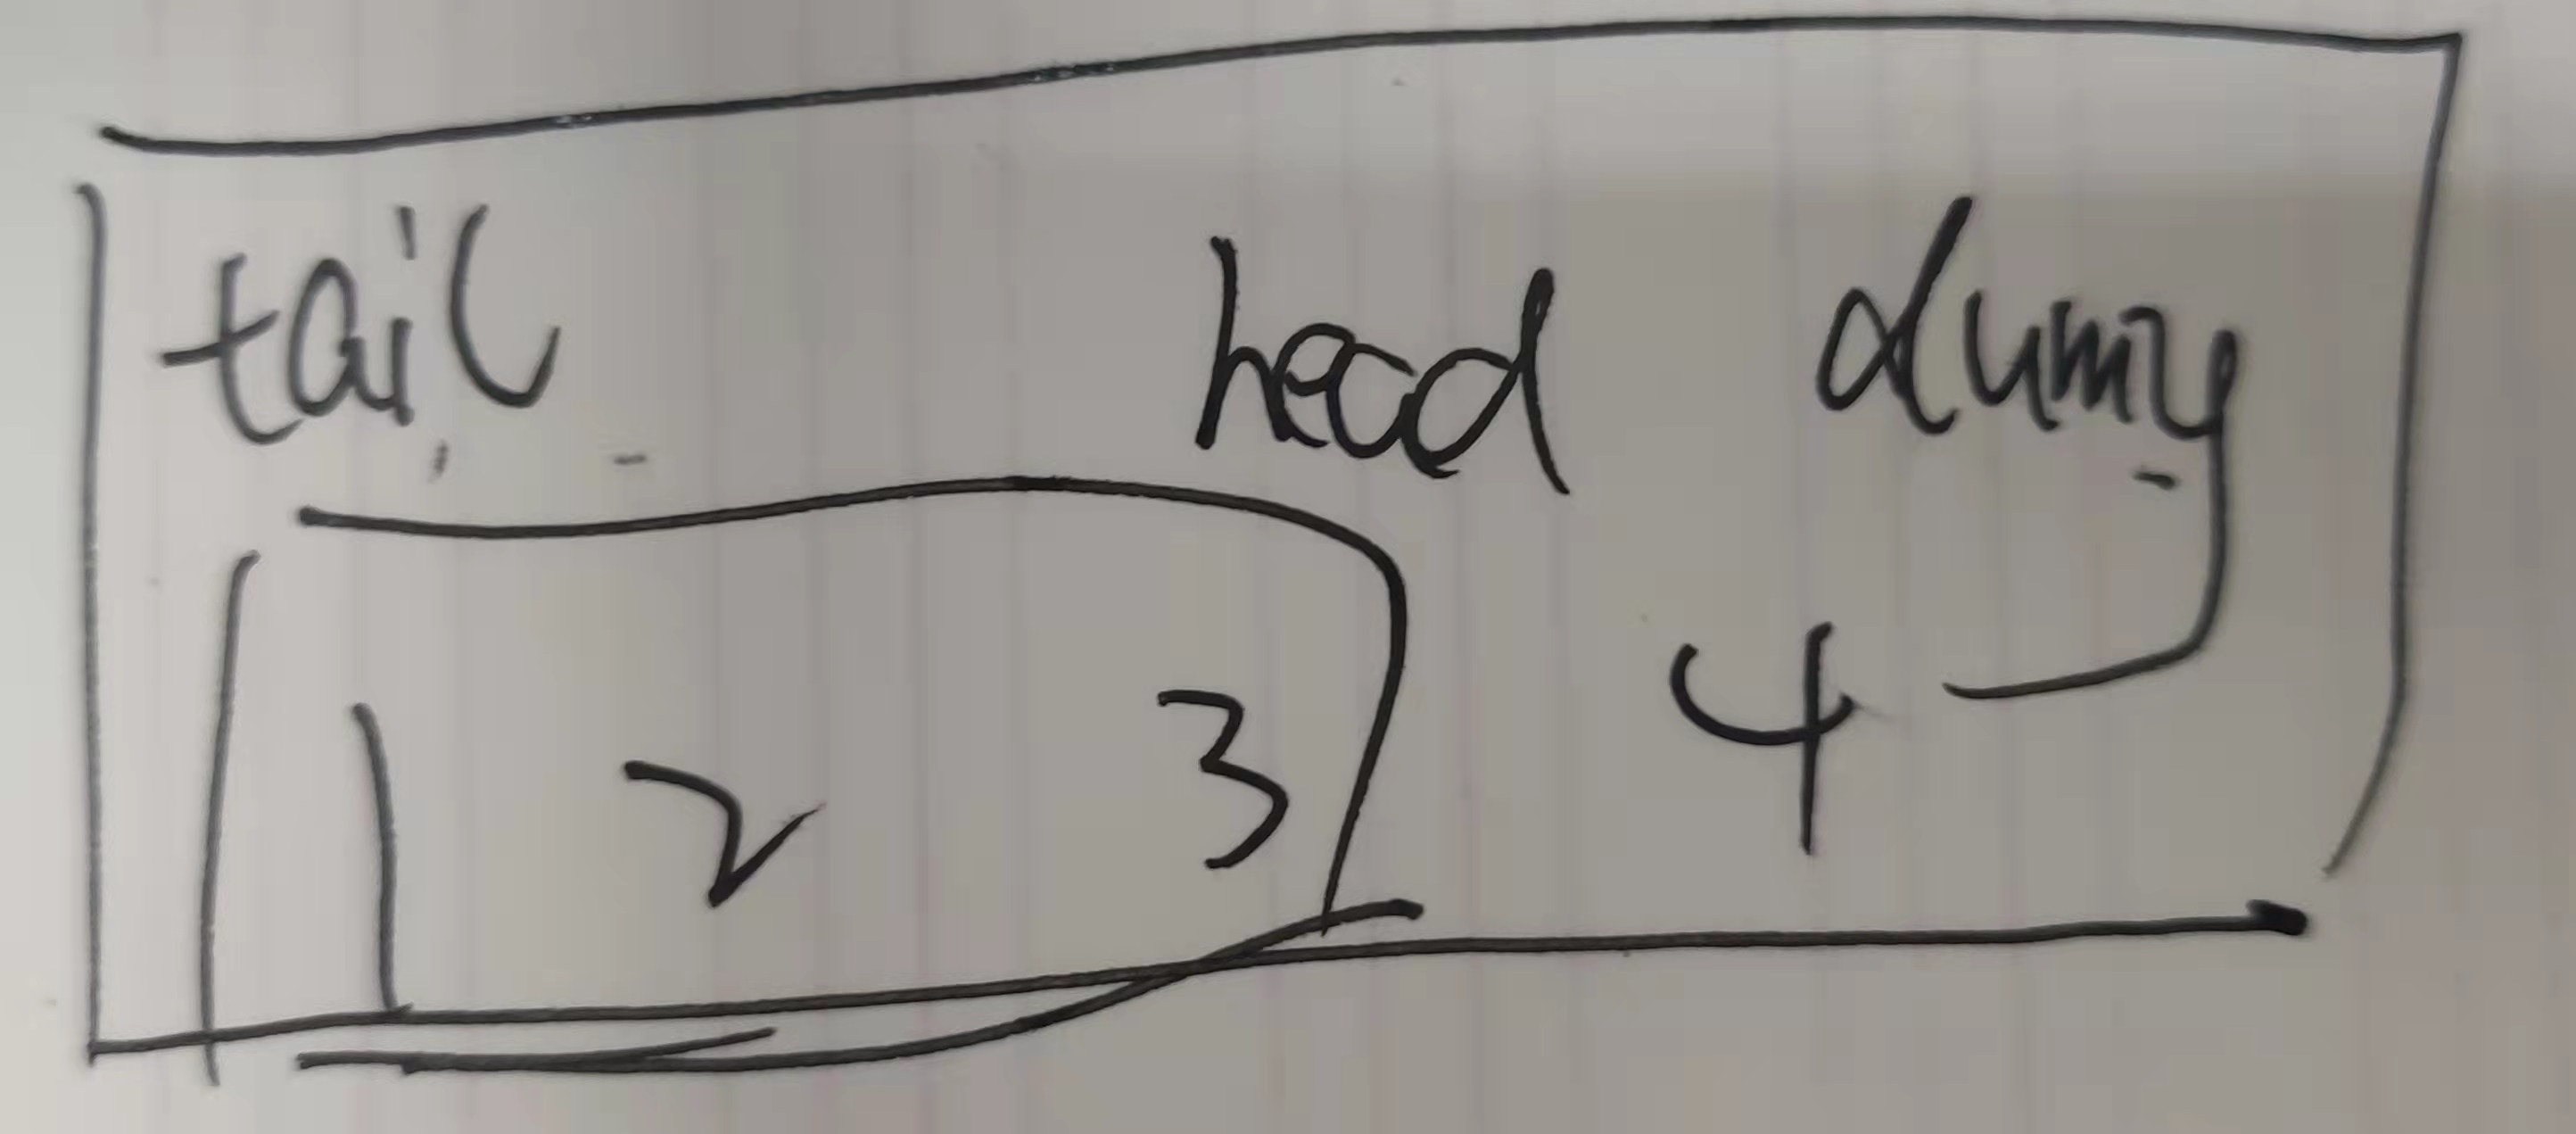 tail head dumy
1 2 3 4